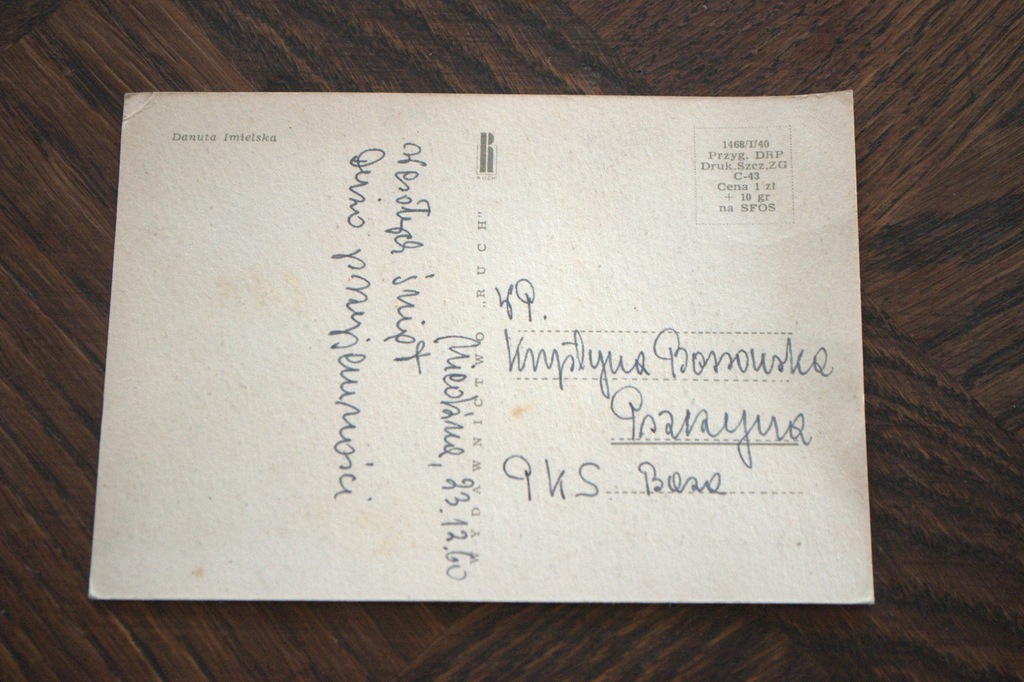 Danuta Imielska
RUCH
WYDAWNICTWO „RUCH"
1468/I/40
Przyg. DRP
Druk.Szcz.ZG
C-43
Cena 1 zł
+ 10 gr
na SFOS
Miedźna, 23.12.60
Wesołych Świąt
Dużo przyjemności
WP.
Krystyna Bossowska
Pszczyna
PKS Baza